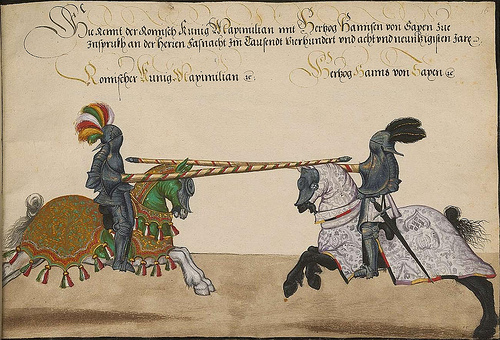 Hie Rennt der Romisch Kunig Maximilian mit Hertzog Hannsen von Saxen zue
Insprukh an der Herren Fasnacht Im Tausendt Vierhundert vnd acht vnd neunkigisten Jare
Romischer Kunig Maximilian ec
Hertzog Hanns von Saxen ec